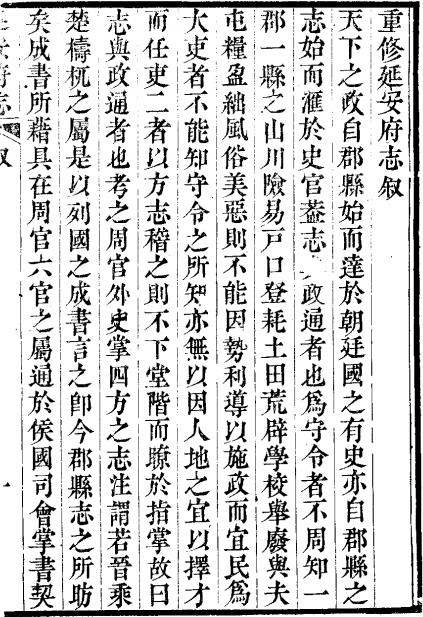 重修延安府志叙
天下之政自郡縣始而達於朝廷國之有史亦自郡縣之
志始而滙於史官葢志政通者也爲守令者不周知一
郡一縣之山川險易戸口登耗土田荒辟學校舉廢與夫
屯糧盈絀風俗美惡則不能因勢利導以施政而宜民爲
大吏者不能知守令之所知亦無以因人地之宜以擇才
而任吏二者以方志稽之則不下堂階而瞭於指掌故曰
志與政通者也考之周官外史掌四方之志注謂若晉乘
楚檮杌之屬是以列國之成書言之卽今郡縣志之所昉
矣成書所藉具在周官六官之屬通於侯國司會掌書契
府志 叙 一